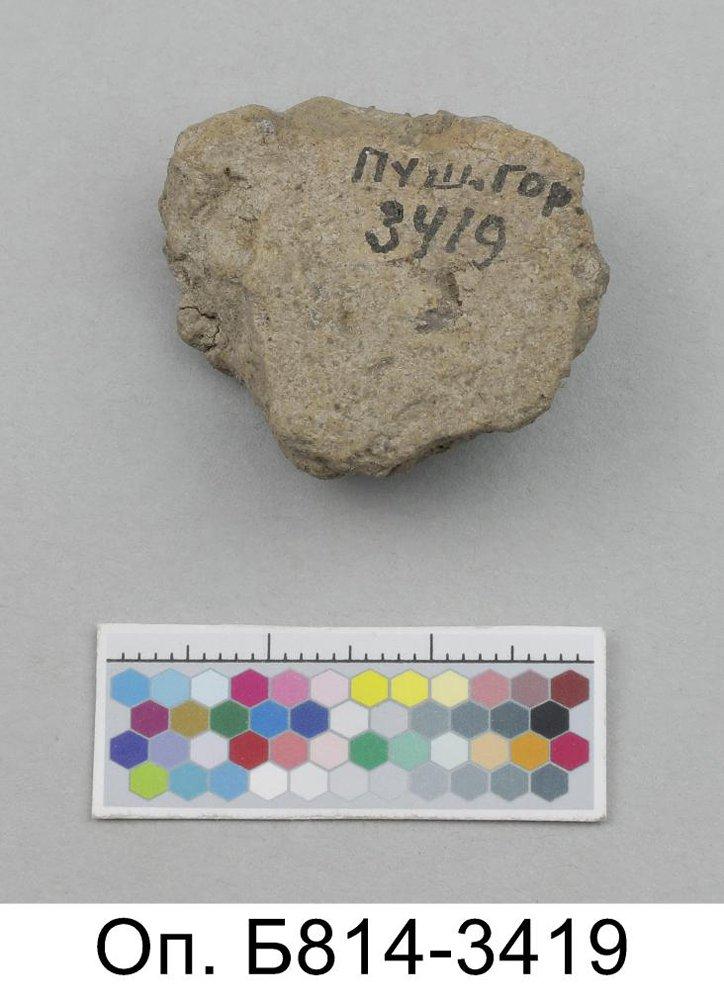 ПУШ.ГОР.
3419
Оп. Б814-3419